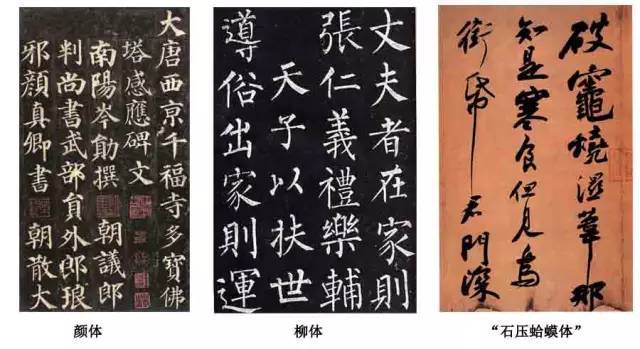 大唐西京千福寺多寶佛
塔感應碑文
南陽岑勛撰 朝議郎
判尚書武部員外郎琅
邪顏真卿書 朝散大
丈夫者在家則
張仁義禮樂輔
天子以扶世
導俗出家則運
破竈燒濕葦那
知是寒食但見烏
銜帋 君門深
颜体
柳体
“石压蛤蟆体”